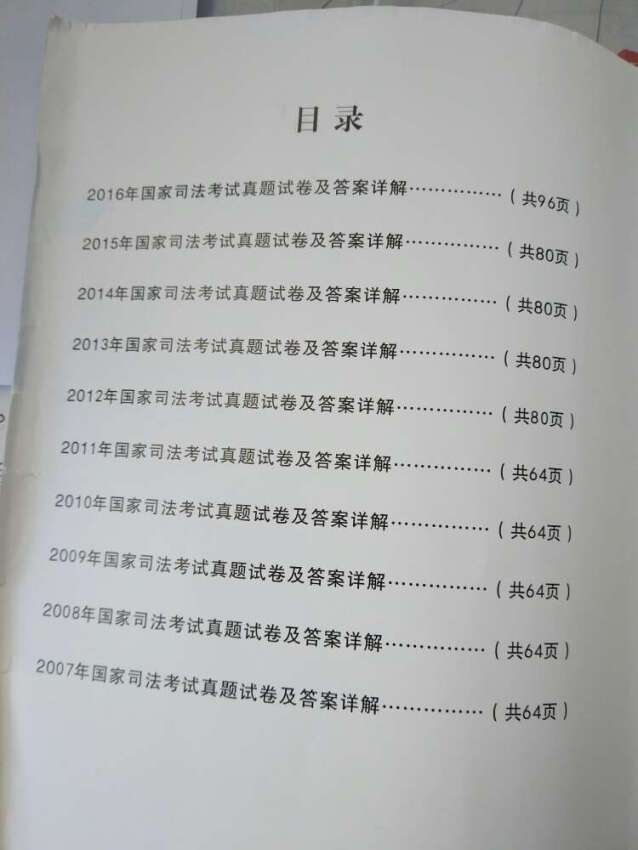 目录
2016年国家司法考试真题试卷及答案详解……………（共96页）
2015年国家司法考试真题试卷及答案详解……………（共80页）
2014年国家司法考试真题试卷及答案详解……………（共80页）
2013年国家司法考试真题试卷及答案详解……………（共80页）
2012年国家司法考试真题试卷及答案详解……………（共80页）
2011年国家司法考试真题试卷及答案详解……………（共64页）
2010年国家司法考试真题试卷及答案详解……………（共64页）
2009年国家司法考试真题试卷及答案详解……………（共64页）
2008年国家司法考试真题试卷及答案详解……………（共64页）
2007年国家司法考试真题试卷及答案详解……………（共64页）